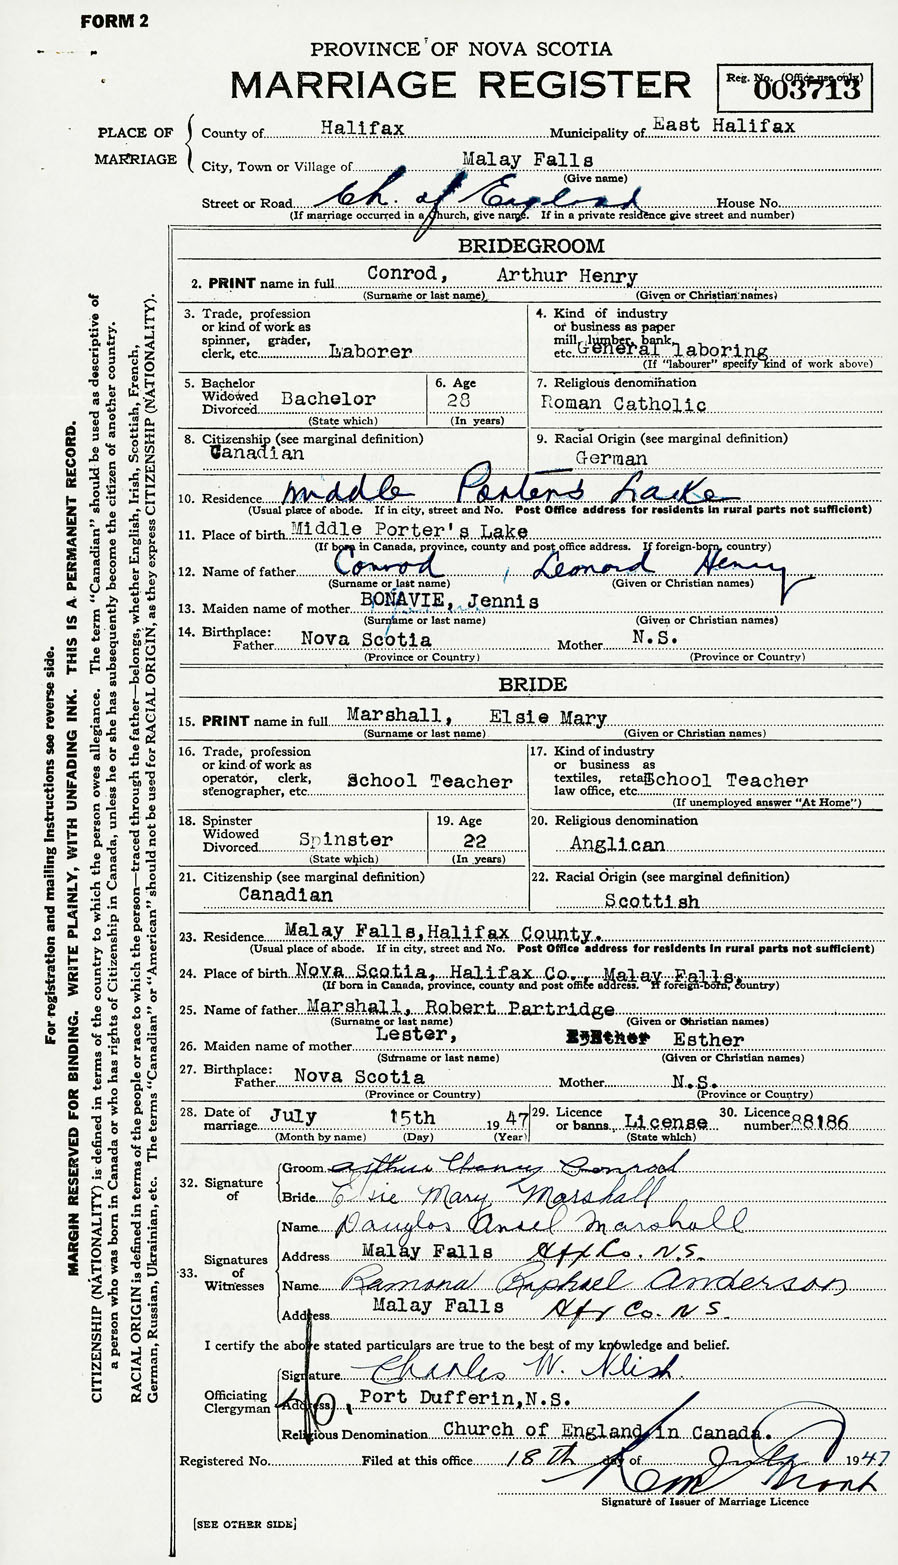 FORM 2
PROVINCE OF NOVA SCOTIA
MARRIAGE REGISTER
Reg. No. (Office use only)
003713
PLACE OF MARRIAGE
County of Halifax Municipality of East Halifax
City, Town or Village of Malay Falls
(Give name)
Street or Road Ch. of England House No.
(If marriage occurred in a church, give name. If in a private residence give street and number)
BRIDEGROOM
2. PRINT name in full Conrod, Arthur Henry
(Surname or last name) (Given or Christian names)
3. Trade, profession or kind of work as spinner, grader, clerk, etc. Laborer
4. Kind of industry or business as paper mill, lumber, bank, etc. General laboring
(If "labourer" specify kind of work above)
5. Bachelor Widowed Divorced Bachelor
(State which)
6. Age 28
(In years)
7. Religious denomination
Roman Catholic
8. Citizenship (see marginal definition)
Canadian
9. Racial Origin (see marginal definition)
German
10. Residence Middle Porters Lake
(Usual place of abode. If in city, street and No. Post Office address for residents in rural parts not sufficient)
11. Place of birth Middle Porter's Lake
(If born in Canada, province, county and post office address. If foreign-born, country)
12. Name of father Conrod , Leonard Henry
(Surname or last name) (Given or Christian names)
13. Maiden name of mother BONAVIE, Jennis
(Surname or last name) (Given or Christian names)
14. Birthplace: Father Nova Scotia Mother N.S.
(Province or Country) (Province or Country)
BRIDE
15. PRINT name in full Marshall, Elsie Mary
(Surname or last name) (Given or Christian names)
16. Trade, profession or kind of work as operator, clerk, stenographer, etc. School Teacher
17. Kind of industry or business as textiles, retail law office, etc. School Teacher
(If unemployed answer "At Home")
18. Spinster Widowed Divorced Spinster
(State which)
19. Age 22
(In years)
20. Religious denomination
Anglican
21. Citizenship (see marginal definition)
Canadian
22. Racial Origin (see marginal definition)
Scottish
23. Residence Malay Falls, Halifax County.
(Usual place of abode. If in city, street and No. Post Office address for residents in rural parts not sufficient)
24. Place of birth Nova Scotia, Halifax Co., Malay Falls,
(If born in Canada, province, county and post office address. If foreign-born, country)
25. Name of father Marshall, Robert Partridge
(Surname or last name) (Given or Christian names)
26. Maiden name of mother Lester, Esther
(Surname or last name) (Given or Christian names)
27. Birthplace: Father Nova Scotia Mother N.S.
(Province or Country) (Province or Country)
28. Date of marriage July 15th 1947
(Month by name) (Day) (Year)
29. Licence or banns License
(State which)
30. Licence number 88186
32. Signature of
Groom Arthur Henry Conrod
Bride Elsie Mary Marshall
33. Signatures of Witnesses
Name Douglas Ansel Marshall
Address Malay Falls Hfx Co. N.S.
Name Ramond Raphael Anderson
Address Malay Falls Hfx Co. N S.
I certify the above stated particulars are true to the best of my knowledge and belief.
Officiating Clergyman
Signature Charles W. Nlish.
Address Port Dufferin, N.S.
Religious Denomination Church of England in Canada.
Registered No. Filed at this office 18th day of July 1947
Signature of Issuer of Marriage Licence
[SEE OTHER SIDE]
For registration and mailing instructions see reverse side.
MARGIN RESERVED FOR BINDING. WRITE PLAINLY, WITH UNFADING INK. THIS IS A PERMANENT RECORD.
CITIZENSHIP (NATIONALITY) is defined in terms of the country to which the person owes allegiance. The term "Canadian" should be used as descriptive of
a person who was born in Canada or who has rights of Citizenship in Canada, unless he or she has subsequently become the citizen of another country.
RACIAL ORIGIN is defined in terms of the people or race to which the person—traced through the father—belongs, whether English, Irish, Scottish, French,
German, Russian, Ukrainian, etc. The terms "Canadian" or "American" should not be used for RACIAL ORIGIN, as they express CITIZENSHIP (NATIONALITY).